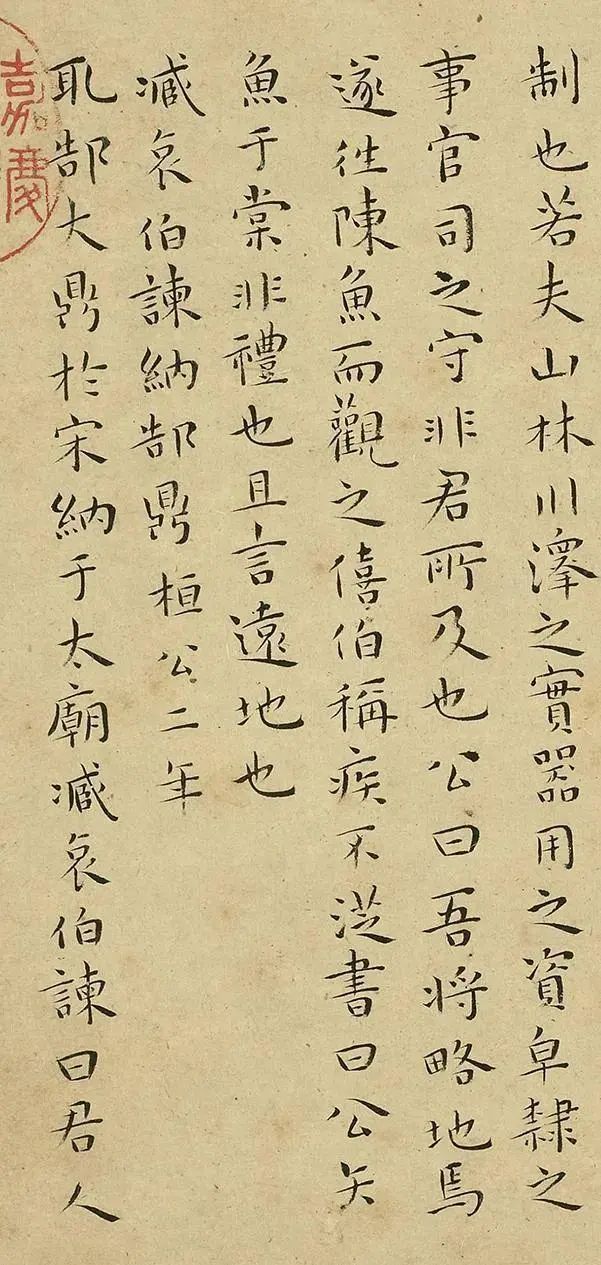 制也若夫山林川澤之實器用之資皁隸之
事官司之守非君所及也公曰吾將略地焉
遂往陳魚而觀之僖伯稱疾不從書曰公矢
魚于棠非禮也且言遠地也
臧哀伯諫納郜鼎桓公二年
取郜大鼎於宋納于太廟臧哀伯諫曰君人
嘉慶